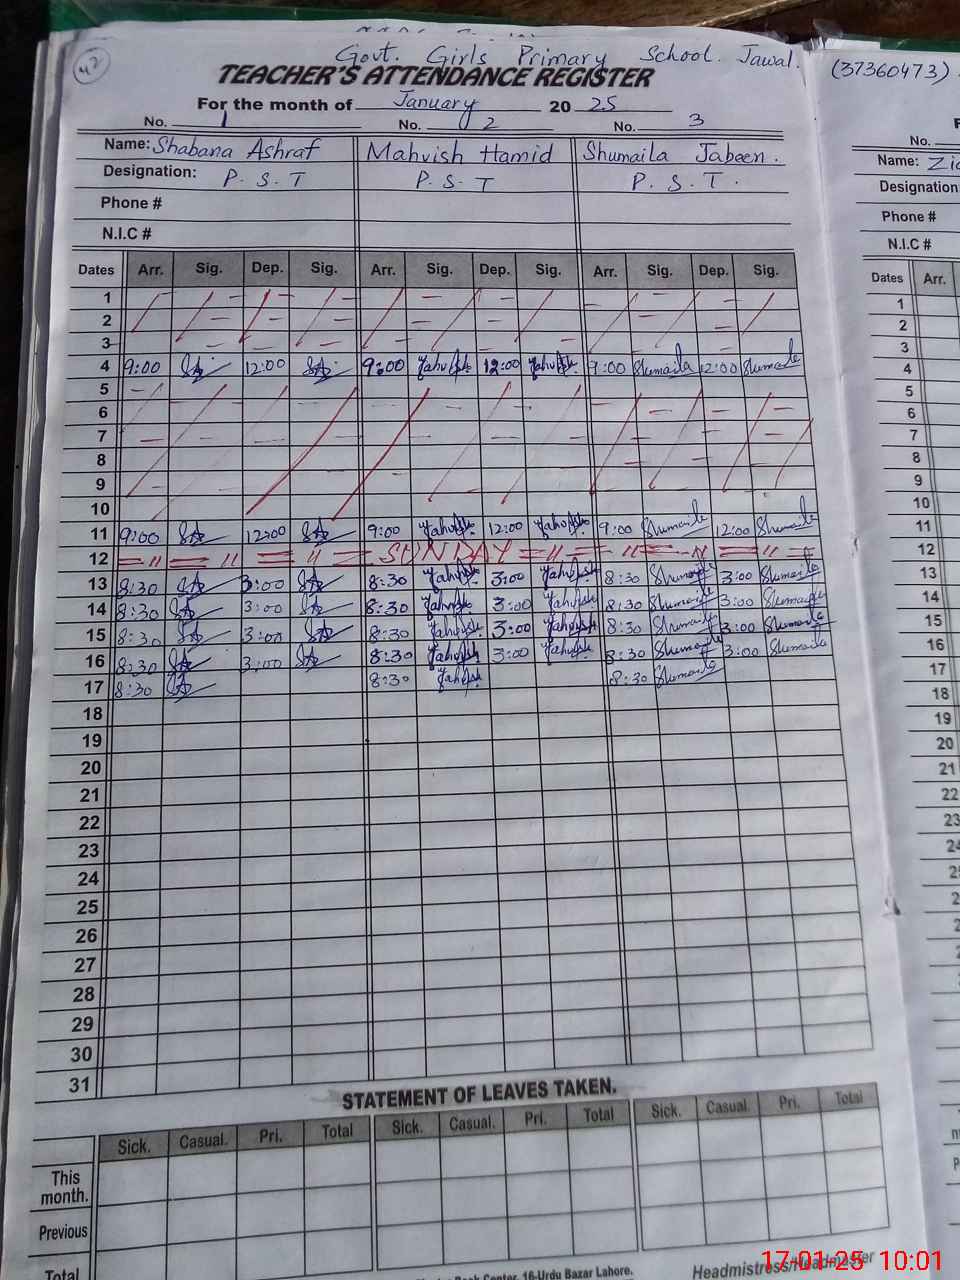 42
Govt. Girls Primary School. Jawal. (37360473)
TEACHER'S ATTENDANCE REGISTER
For the month of January 20 25
No. 1 No. 2 No. 3
Name: Shabana Ashraf Mahvish Hamid Shumaila Jabeen.
Designation: P. S. T P. S. T P. S. T.
Phone #
N.I.C #
Dates Arr. Sig. Dep. Sig. Arr. Sig. Dep. Sig. Arr. Sig. Dep. Sig.
1
2
3
4 9:00 12:00 9:00 12:00 9:00 Shumaila 12:00 Shumaila
5
6
7
8
9
10
11 9:00 12:00 9:00 12:00 9:00 Shumaila 12:00 Shumaila
12 = 11 = 11 = 11 = SUNDAY = 11 = 11 = 11 = 11 =
13 8:30 3:00 8:30 3:00 8:30 Shumaila 3:00 Shumaila
14 8:30 3:00 8:30 3:00 8:30 Shumaila 3:00 Shumaila
15 8:30 3:00 8:30 3:00 8:30 Shumaila 3:00 Shumaila
16 8:30 3:00 8:30 3:00 8:30 Shumaila 3:00 Shumaila
17 8:30 8:30 8:30 Shumaila
18
19
20
21
22
23
24
25
26
27
28
29
30
31
STATEMENT OF LEAVES TAKEN.
Sick. Casual. Pri. Total Sick. Casual. Pri. Total Sick. Casual. Pri. Total
This
month.
Previous
Total
Book Center, 16-Urdu Bazar Lahore.
Headmistress/Headmaster
17 01 25 10:01
No.
Name:
Designation
Phone #
N.I.C #
Dates Arr.
1
2
3
4
5
6
7
8
9
10
11
12
13
14
15
16
17
18
19
20
21
22
23